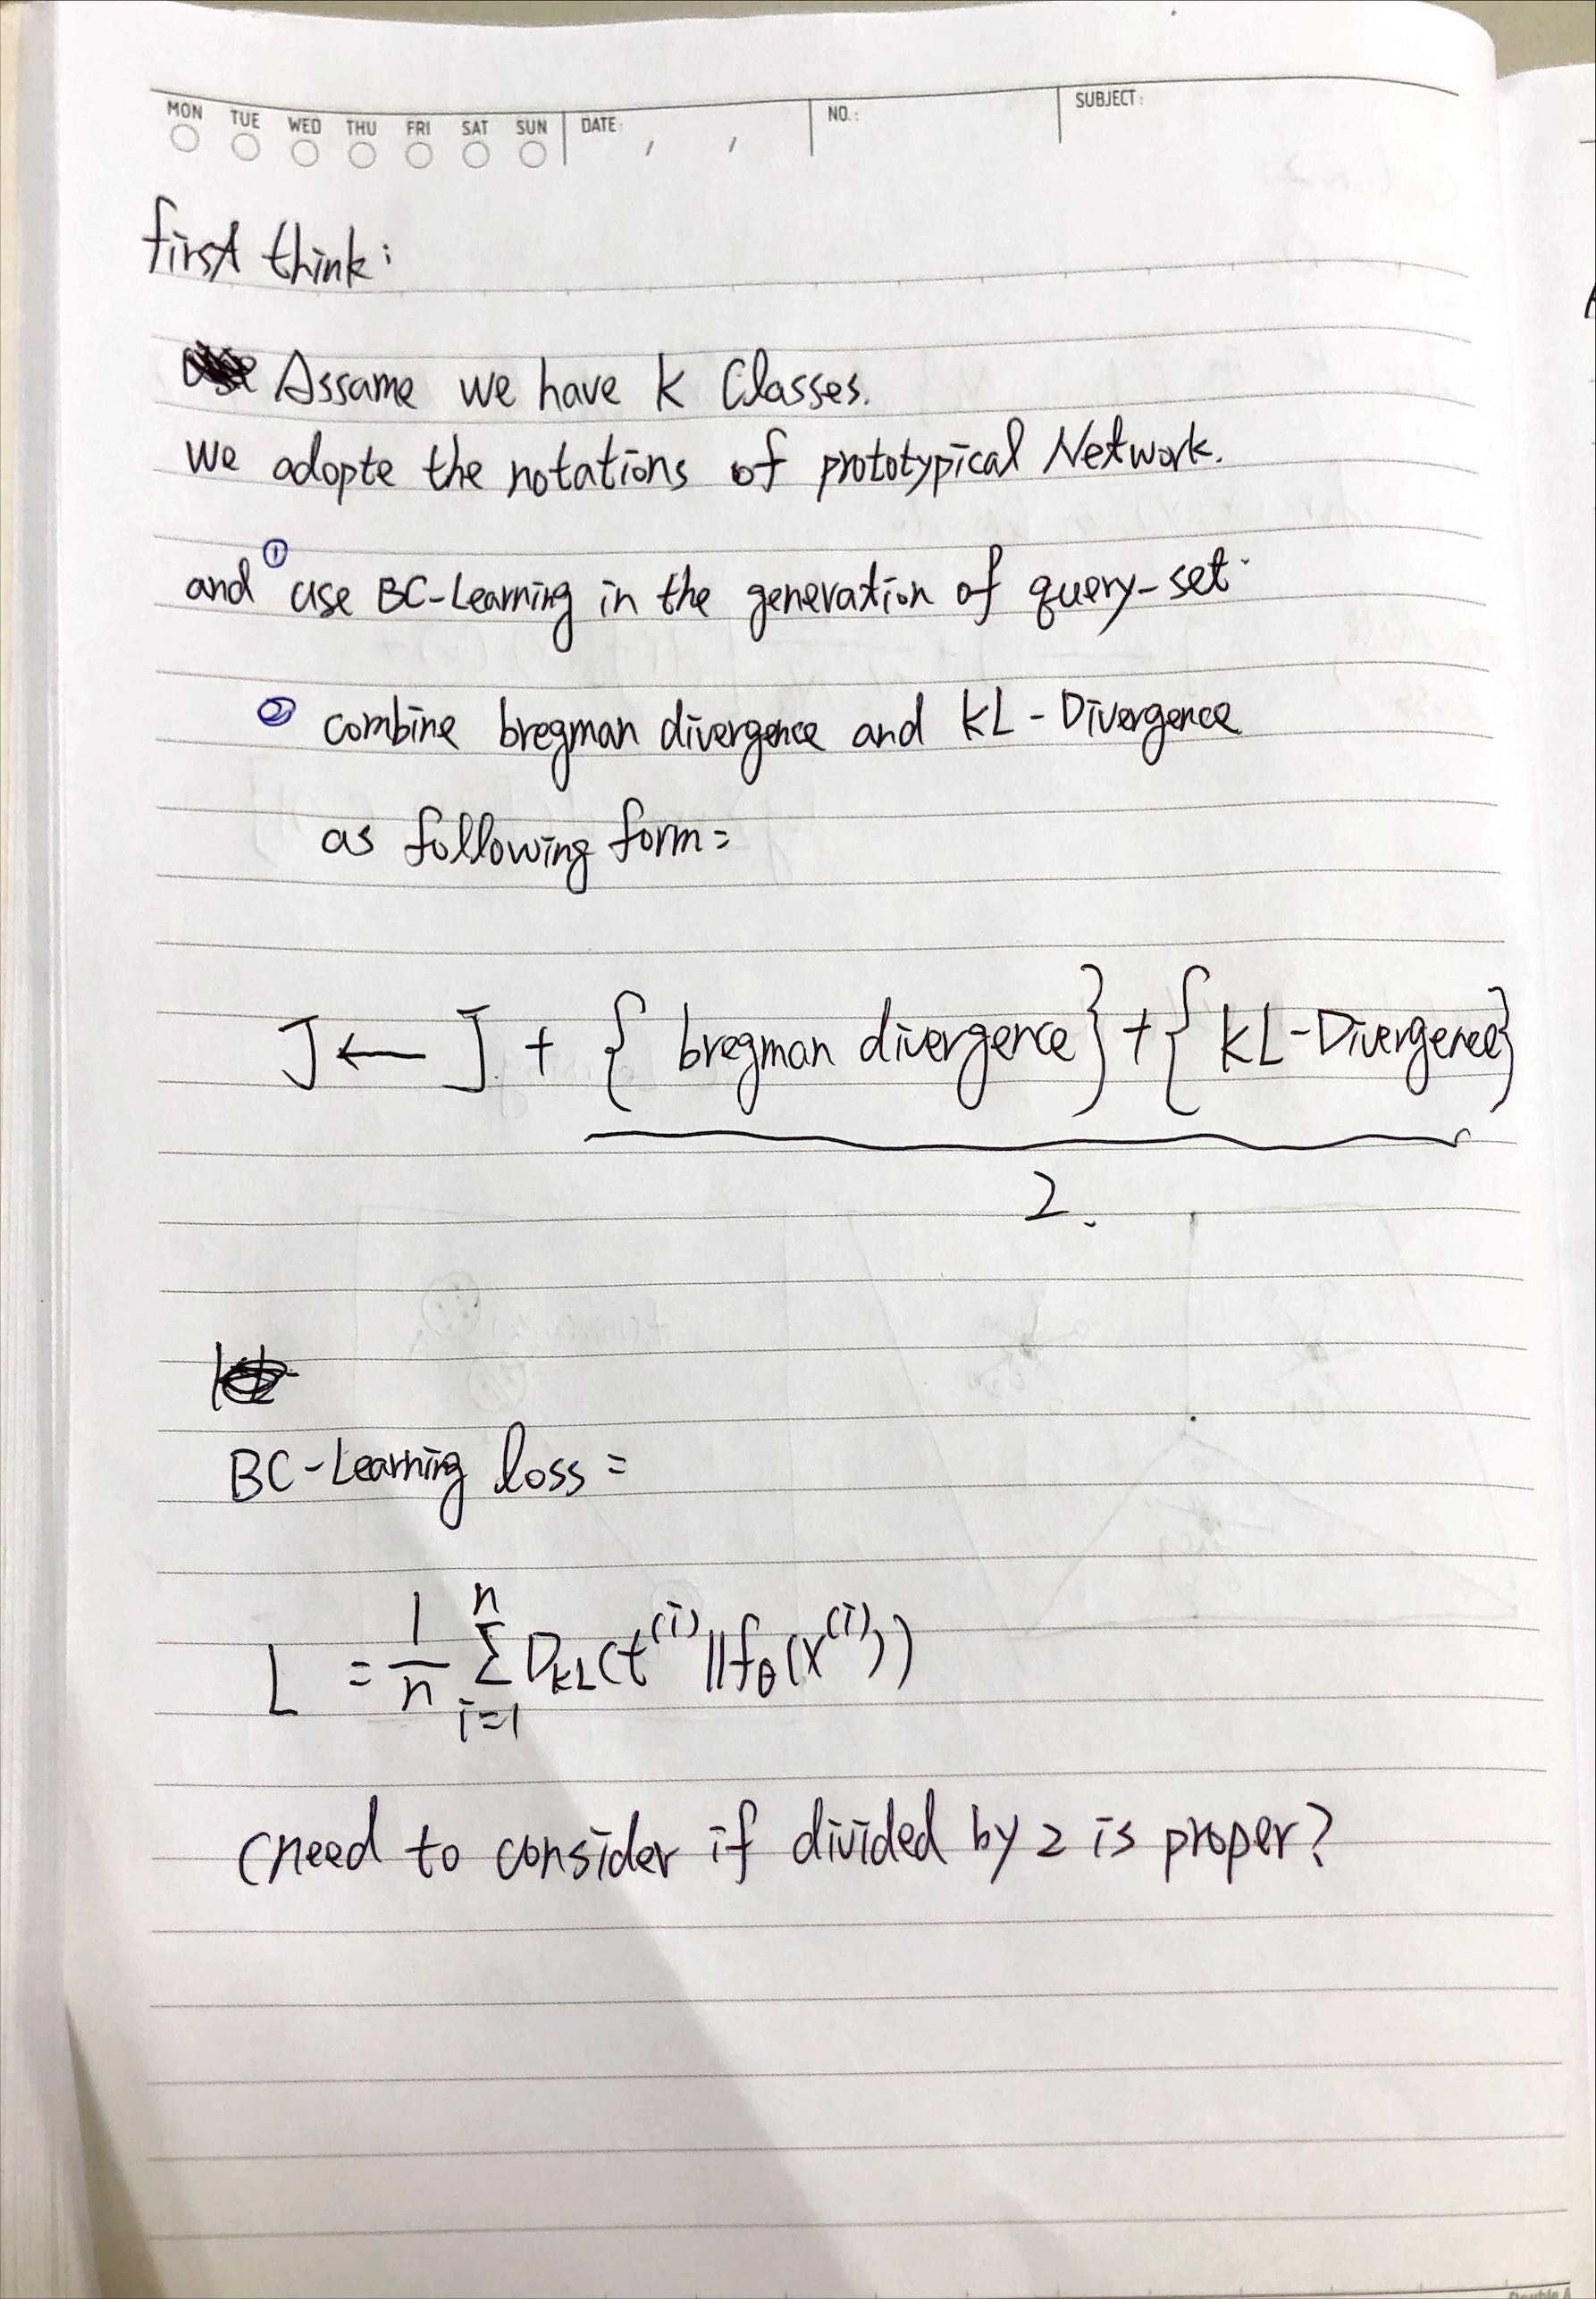 MON TUE WED THU FRI SAT SUN DATE: / / NO.: SUBJECT:
first think:
Assame we have k Classes.
we adopte the notations of prototypical Network.
and ① use BC-Learning in the generation of query-set.
② combine bregman divergence and KL-Divergence
as following form:
J ← J + { bregman divergence } + { KL-Divergence }
2.
BC-Learning loss =
L = 1/n Σ i=1 n D_KL(t^(i) || f_θ(x^(i)))
(need to consider if divided by 2 is proper?
Double A